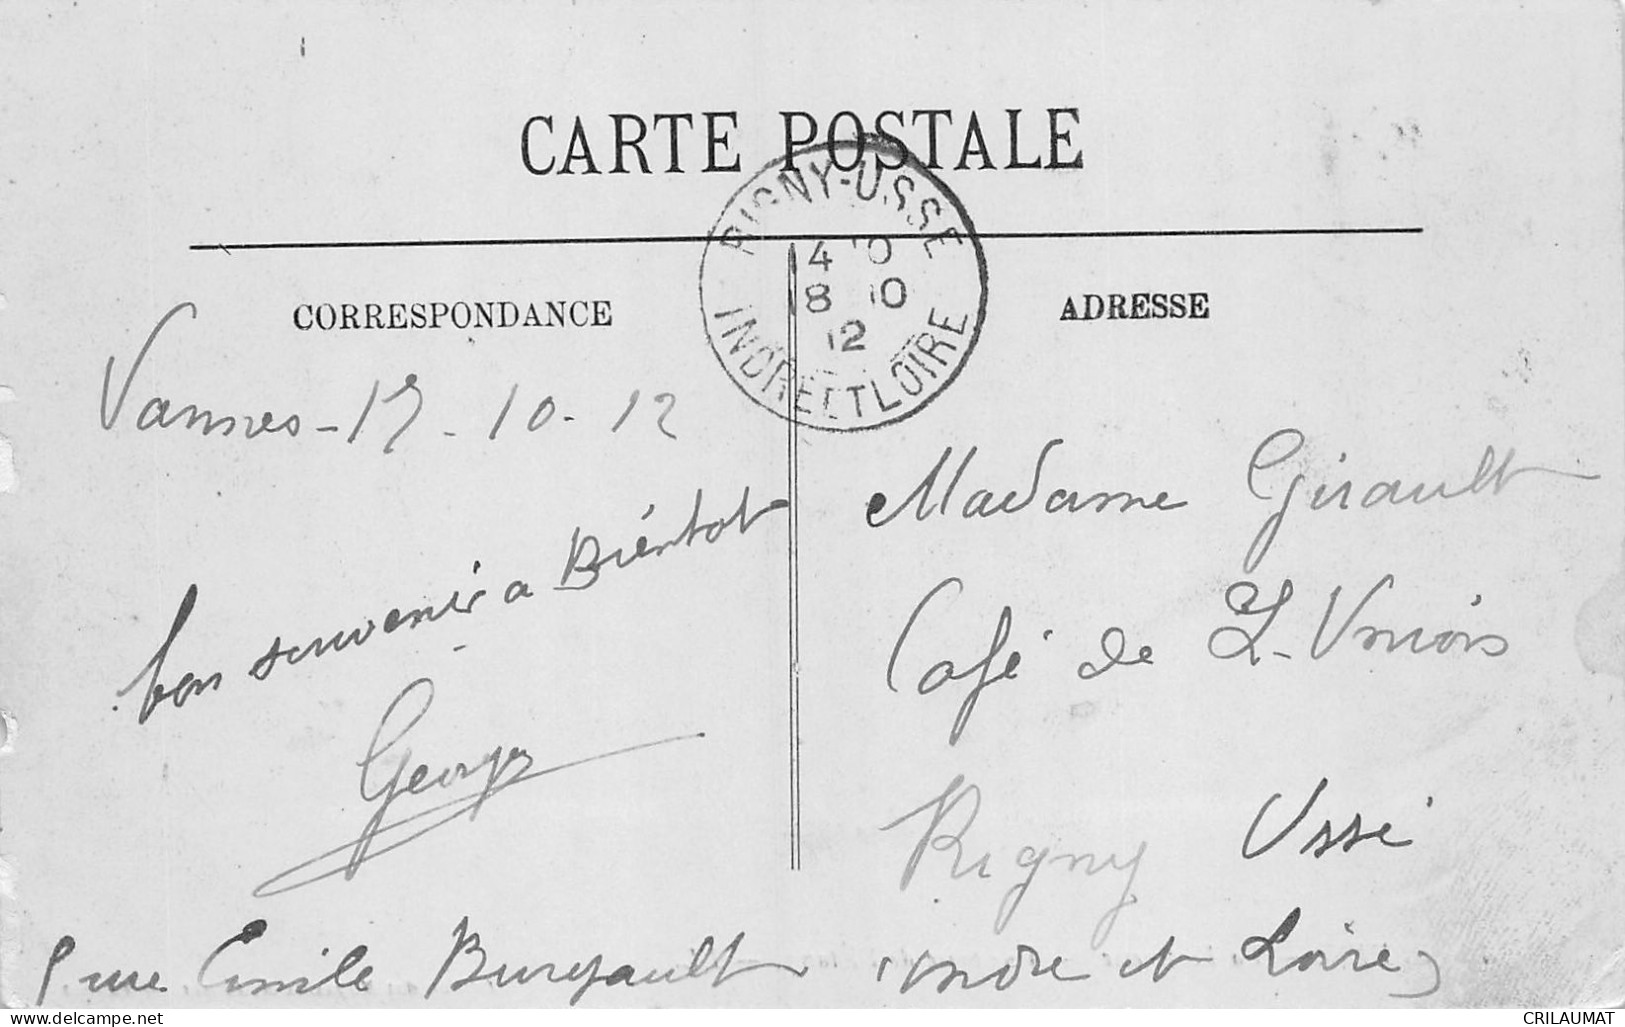 CARTE POSTALE
RIGNY-USSE
4 10
18 10
12
INDRE ET LOIRE
CORRESPONDANCE
ADRESSE
Vannes - 17 - 10 - 12
bon souvenir a Biéntot
Georges
rue Emile Burgault
Madame Girault
Café de L-Union
Rigny Ussé
indre et Loire
CRILAUMAT